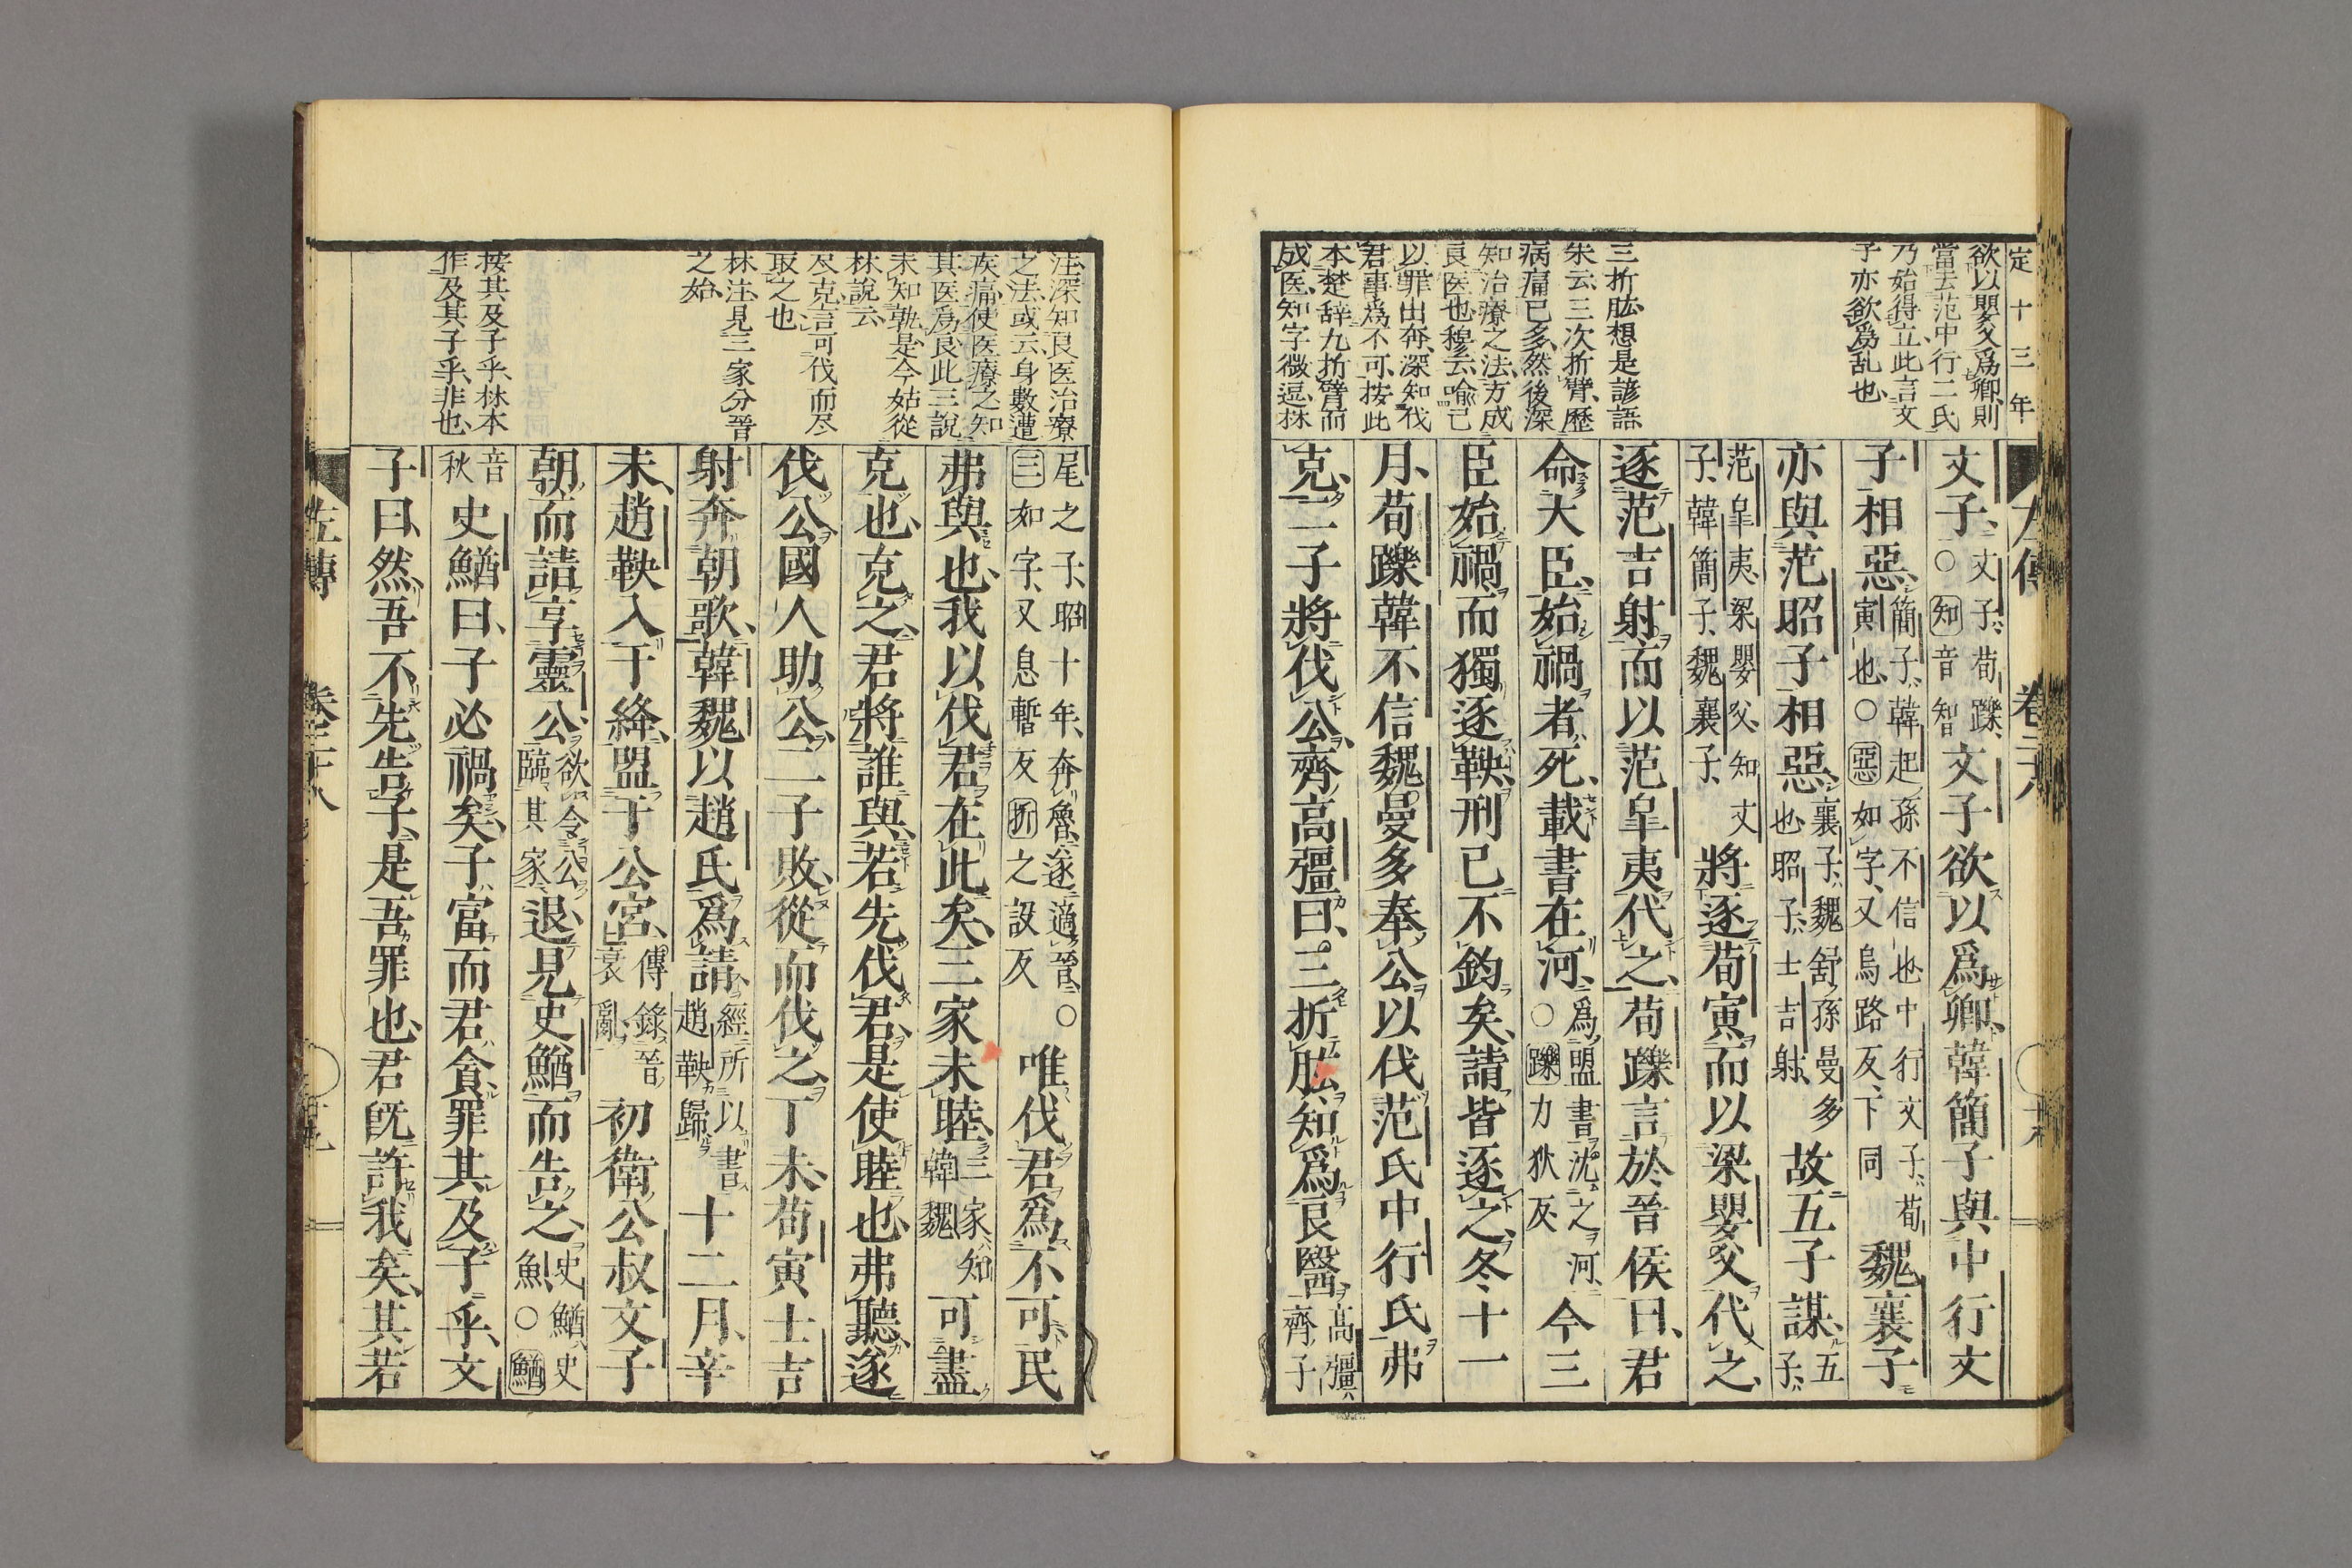 定十三年
欲以嬰父爲卿、則
當去范中行二氏
乃始得立、此言文
子亦欲爲乱也、
三折肱、想是諺語
朱云、三次折臂、歷
病痛已多、然後深
知治療之法、方成
良医也、穆云、喩己
以罪出奔、深知伐
君事爲不可、按此
本楚辞九折臂而
成医、知字微逗、林
文子、文子、荀躒、○知音智文子欲以爲卿、韓簡子與中行文
子相惡、簡子、韓起孫不信也、中行文子、荀寅也、○惡如字、又烏路反、下同魏襄子
亦與范昭子相惡、襄子、魏舒孫曼多也、昭子、士吉射、故五子謀、五子、
范皐夷、梁嬰父、知文子、韓簡子、魏襄子、將逐荀寅、而以梁嬰父代之、
逐范吉射、而以范皐夷代之、荀躒言於晉侯曰、君
命大臣、始禍者死、載書在河、爲盟書沈之河、○躒力狄反、今三
臣始禍、而獨逐鞅、刑已不鈞矣、請皆逐之、冬十一
月、荀躒韓不信魏曼多奉公以伐范氏中行氏、弗
克、二子將伐公、齊高彊曰、三折肱知爲良醫、高彊、齊子
左傳 卷二十八
注、深知良医治療
之法、或云、身數遭
疾痛、使医療之、知
其医爲良、此三說
未知孰是、今姑從
林說云、
尽克、言可伐而尽
取之也、
林注、見三家分晉
之始、
按其及子乎、林本
作及其子乎、非也、
尾之子、昭十年、奔魯、遂適晉、○三如字、又息暫反、折之設反唯伐君爲不可、民
弗與也、我以伐君在此矣、三家未睦、三家、知韓魏可盡
克也、克之、君將誰與、若先伐君、是使睦也、弗聽、遂
伐公、國人助公、二子敗、從而伐之、丁未、荀寅士吉
射奔朝歌、韓魏以趙氏爲請、經所以書趙鞅歸十二月、辛
未、趙鞅入于絳、盟于公宮、傳錄晉衰亂、初衛公叔文子
朝、而請享靈公、欲令公臨其家、退、見史鰌而告之、史鰌、史魚、○鰌
音秋史鰌曰、子必禍矣、子富而君貪、罪其及子乎、文
子曰、然、吾不先告子、是吾罪也、君旣許我矣、其若
左傳 卷二十八